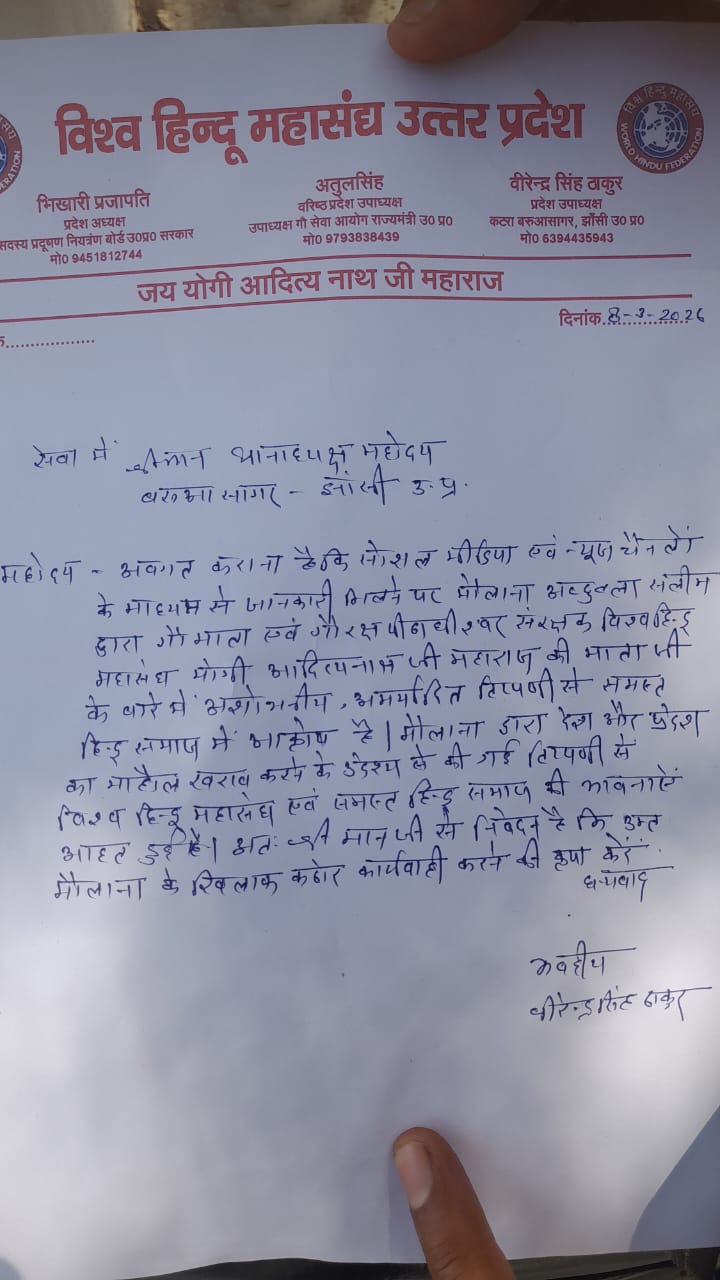 विश्व हिन्दू महासंघ उत्तर प्रदेश
विश्व हिन्दू महासंघ
WORLD HINDU FEDERATION
भिखारी प्रजापति
प्रदेश अध्यक्ष
सदस्य प्रदूषण नियत्रंण बोर्ड उ0प्र0 सरकार
मो0 9451812744
अतुलसिंह
वरिष्ठ प्रदेश उपाध्यक्ष
उपाध्यक्ष गौ सेवा आयोग राज्यमंत्री उ0 प्र0
मो0 9793838439
वीरेन्द्र सिंह ठाकुर
प्रदेश उपाध्यक्ष
कटरा बरुआसागर, झाँसी उ0 प्र0
मो0 6394435943
जय योगी आदित्य नाथ जी महाराज
दिनांक 8-3-2026
सेवा में श्रीमान थानाध्यक्ष महोदय
बरुआ सागर - झाँसी उ.प्र.
महोदय - अवगत कराना है कि सोशल मीडिया एवं न्यूज चैनलों
के माध्यम से जानकारी मिलने पर मौलाना अब्दुल्ला सलीम
द्वारा गौ माता एवं गौरक्ष पीठाधीश्वर संरक्षक विश्व हिन्दू
महासंघ योगी आदित्यनाथ जी महाराज की माता जी
के बारे में अशोभनीय, अमर्यादित टिप्पणी से समस्त
हिन्दू समाज में आक्रोष है। मौलाना द्वारा देश और प्रदेश
का माहौल खराब करने के उद्देश्य से की गई टिप्पणी से
विश्व हिन्दू महासंघ एवं समस्त हिन्दू समाज की भावनाऐं
आहत हुई है। अतः श्री मान जी से निवेदन है कि उक्त
मौलाना के खिलाफ कठोर कार्यवाही करने की कृपा करें
धन्यवाद
भवदीय
वीरेन्द्र सिंह ठाकुर